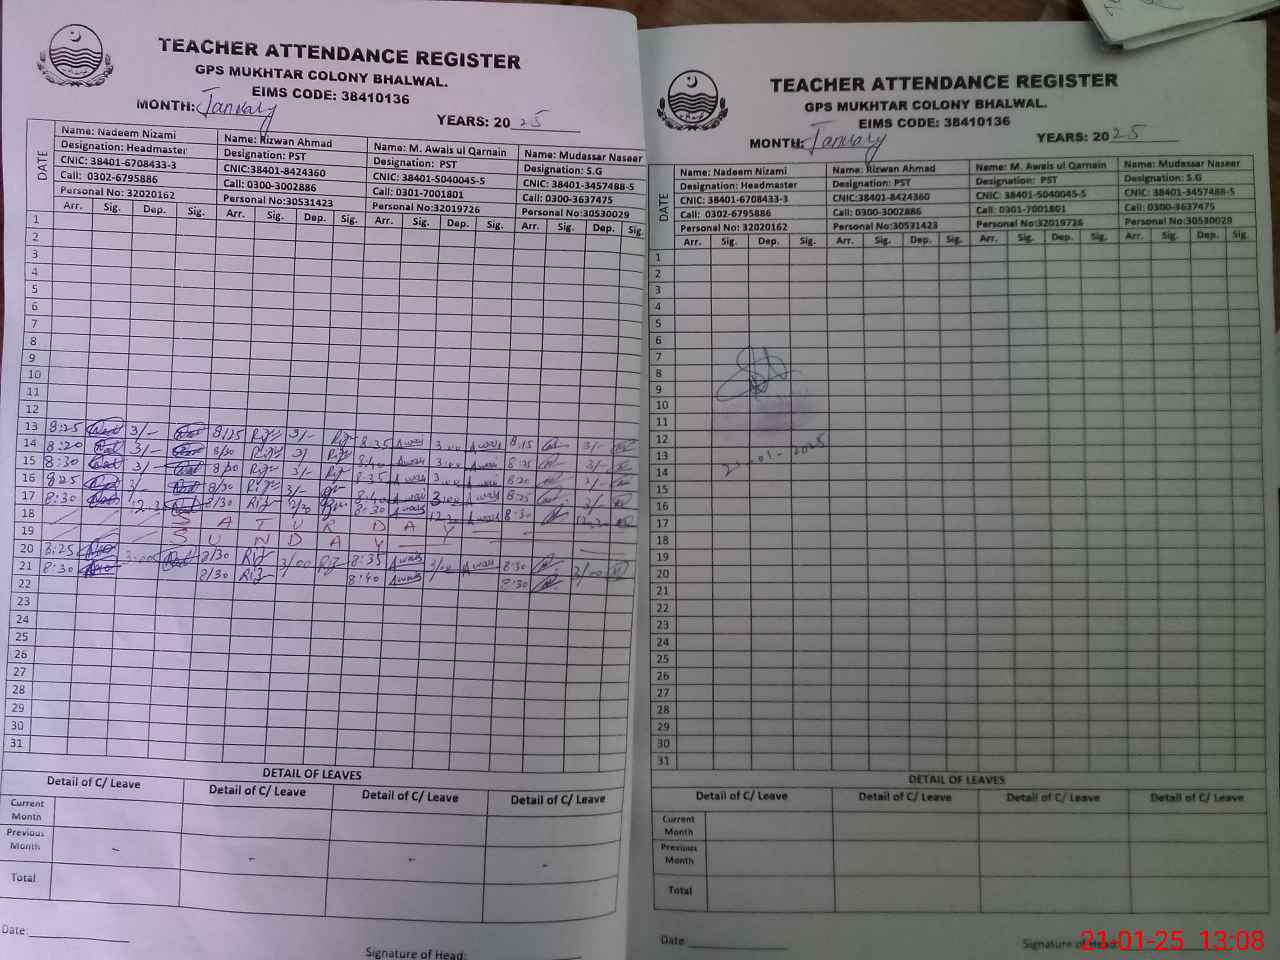 TEACHER ATTENDANCE REGISTER
GPS MUKHTAR COLONY BHALWAL.
EIMS CODE: 38410136
MONTH: January YEARS: 2025
DATE
Name: Nadeem Nizami Name: Rizwan Ahmad Name: M. Awais ul Qarnain Name: Mudassar Naseer
Designation: Headmaster Designation: PST Designation: PST Designation: S.G
CNIC: 38401-6708433-3 CNIC:38401-8424360 CNIC:38401-5040045-5 CNIC: 38401-3457488-5
Call: 0302-6795886 Call: 0300-3002886 Call: 0301-7001801 Call: 0300-3637475
Personal No: 32020162 Personal No:30531423 Personal No: 32019726 Personal No:30530029
Arr. Sig. Dep. Sig. Arr. Sig. Dep. Sig. Arr. Sig. Dep. Sig. Arr. Sig. Dep. Sig.
1
2
3
4
5
6
7
8
9
10
11
12
13 8:25 3/- 8/25 Riz 3/- Riz 8:35 Awais 3:00 Awais 8:15 3/-
14 8:20 3/- 8/30 Riz 3/- Riz 8:40 Awais 3:00 Awais 8:25 3/-
15 8:30 3/- 8/30 Riz 3/- Riz 8:35 Awais 3:00 Awais 8:20 3/-
16 825 3/- 8/30 Riz 3/- 8:40 Awais 3:00 Awais 8:25 3/-
17 8:30 8/30 Riz 8:30 Awais Awais 8:30
18 SATURDAY
19 SUNDAY
20 8:25 3:00 8/30 Riz 3/00 Riz 8:35 Awais 3/00 Awais 8:30 3/00
21 8:30 8/30 Riz 8:40 Awais 8:30
22
23
24
25
26
27
28
29
30
31
DETAIL OF LEAVES
Detail of C/ Leave Detail of C/ Leave Detail of C/ Leave Detail of C/ Leave
Current Month
Previous Month - - - -
Total
Date:
Signature of Head:
TEACHER ATTENDANCE REGISTER
GPS MUKHTAR COLONY BHALWAL.
EIMS CODE: 38410136
MONTH: January YEARS: 2025
DATE
Name: Nadeem Nizami Name: Rizwan Ahmad Name: M. Awais ul Qarnain Name: Mudassar Naseer
Designation: Headmaster Designation: PST Designation: PST Designation: S.G
CNIC: 38401-6708433-3 CNIC:38401-8424360 CNIC:38401-5040045-5 CNIC: 38401-3457488-5
Call: 0302-6795886 Call: 0300-3002886 Call: 0301-7001801 Call: 0300-3637475
Personal No: 32020162 Personal No:30531423 Personal No: 32019726 Personal No:30530029
Arr. Sig. Dep. Sig. Arr. Sig. Dep. Sig. Arr. Sig. Dep. Sig. Arr. Sig. Dep. Sig.
1
2
3
4
5
6
7
8
9
10
11
12
13
21-01-2025
14
15
16
17
18
19
20
21
22
23
24
25
26
27
28
29
30
31
DETAIL OF LEAVES
Detail of C/ Leave Detail of C/ Leave Detail of C/ Leave Detail of C/ Leave
Current Month
Previous Month
Total
Date:
Signature of Head:
21-01-25 13:08